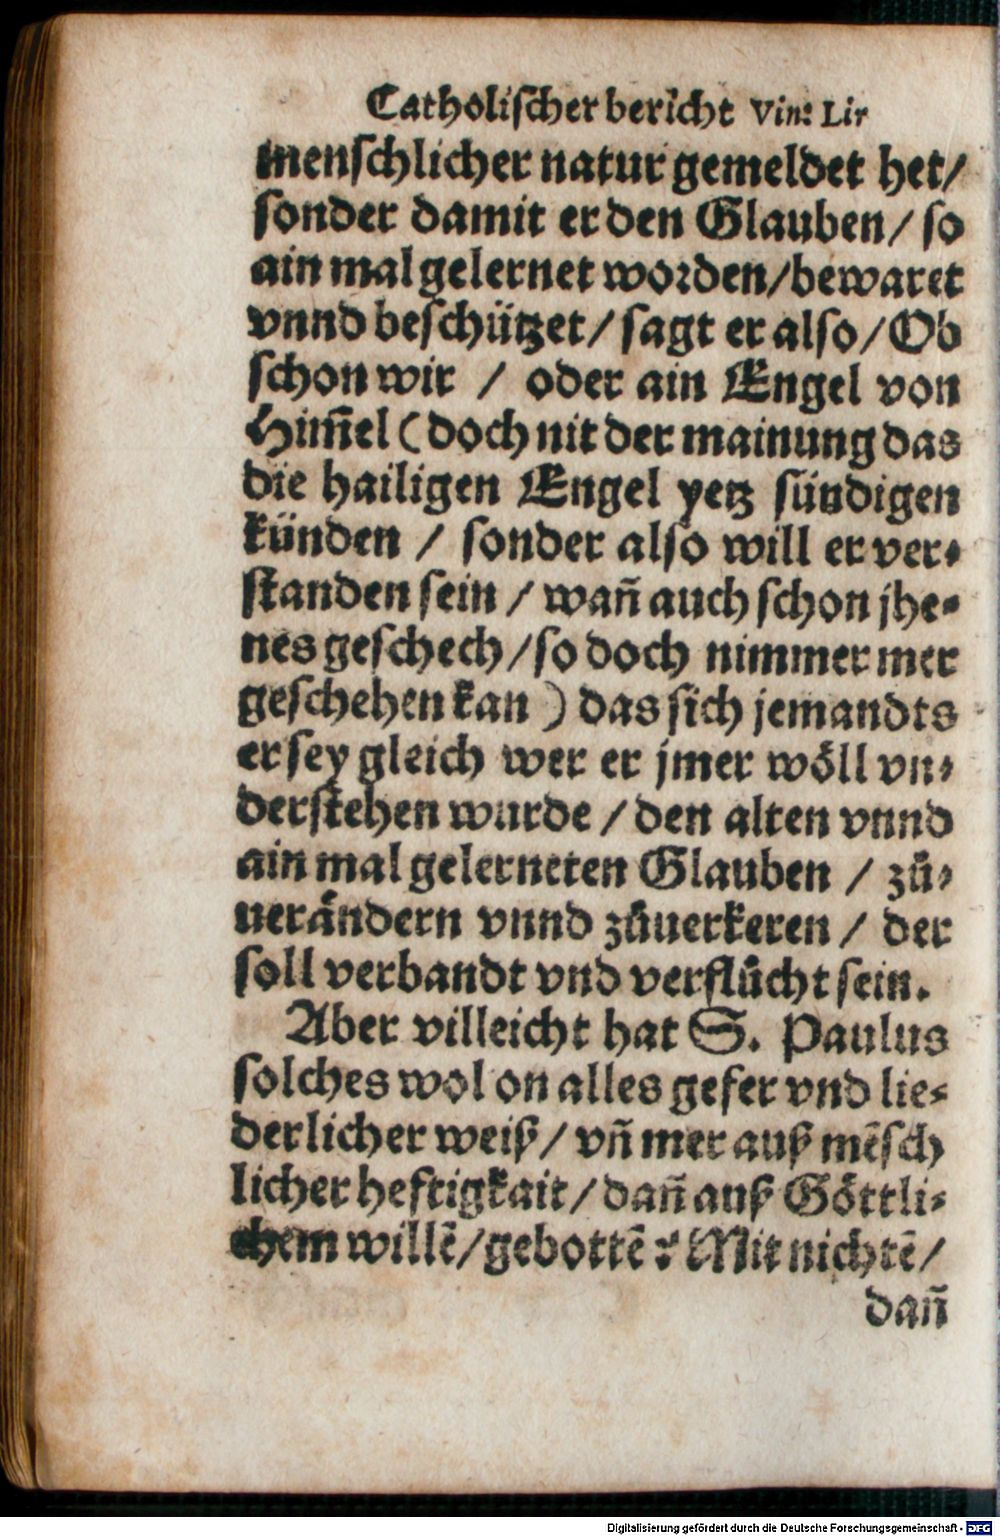 Catholischer bericht Vin: Lir
menschlicher natur gemeldet het/
sonder damit er den Glauben/ so
ain mal gelernet worden/bewaret
vnnd beschützet/ sagt er also/ Ob
schon wir / oder ain Engel von
Him̃el (doch nit der mainung das
die hailigen Engel yetz sündigen
künden / sonder also will er ver⸗
standen sein / wañ auch schon jhe⸗
nes geschech/so doch nimmer mer
geschehen kan ) das sich jemandts
er sey gleich wer er jmer wöll vn⸗
derstehen wurde / den alten vnnd
ain mal gelerneten Glauben / zů⸗
uerändern vnnd zůuerkeren / der
soll verbandt vnd verflůcht sein.
Aber villeicht hat S. Paulus
solches wol on alles gefer vnd lie⸗
derlicher weiß/ vñ mer auß mẽsch
licher heftigkait/ dañ auß Göttli⸗
chem willẽ/gebottẽ? Mit nichtẽ/
dañ
Digitalisierung gefördert durch die Deutsche Forschungsgemeinschaft - DFG